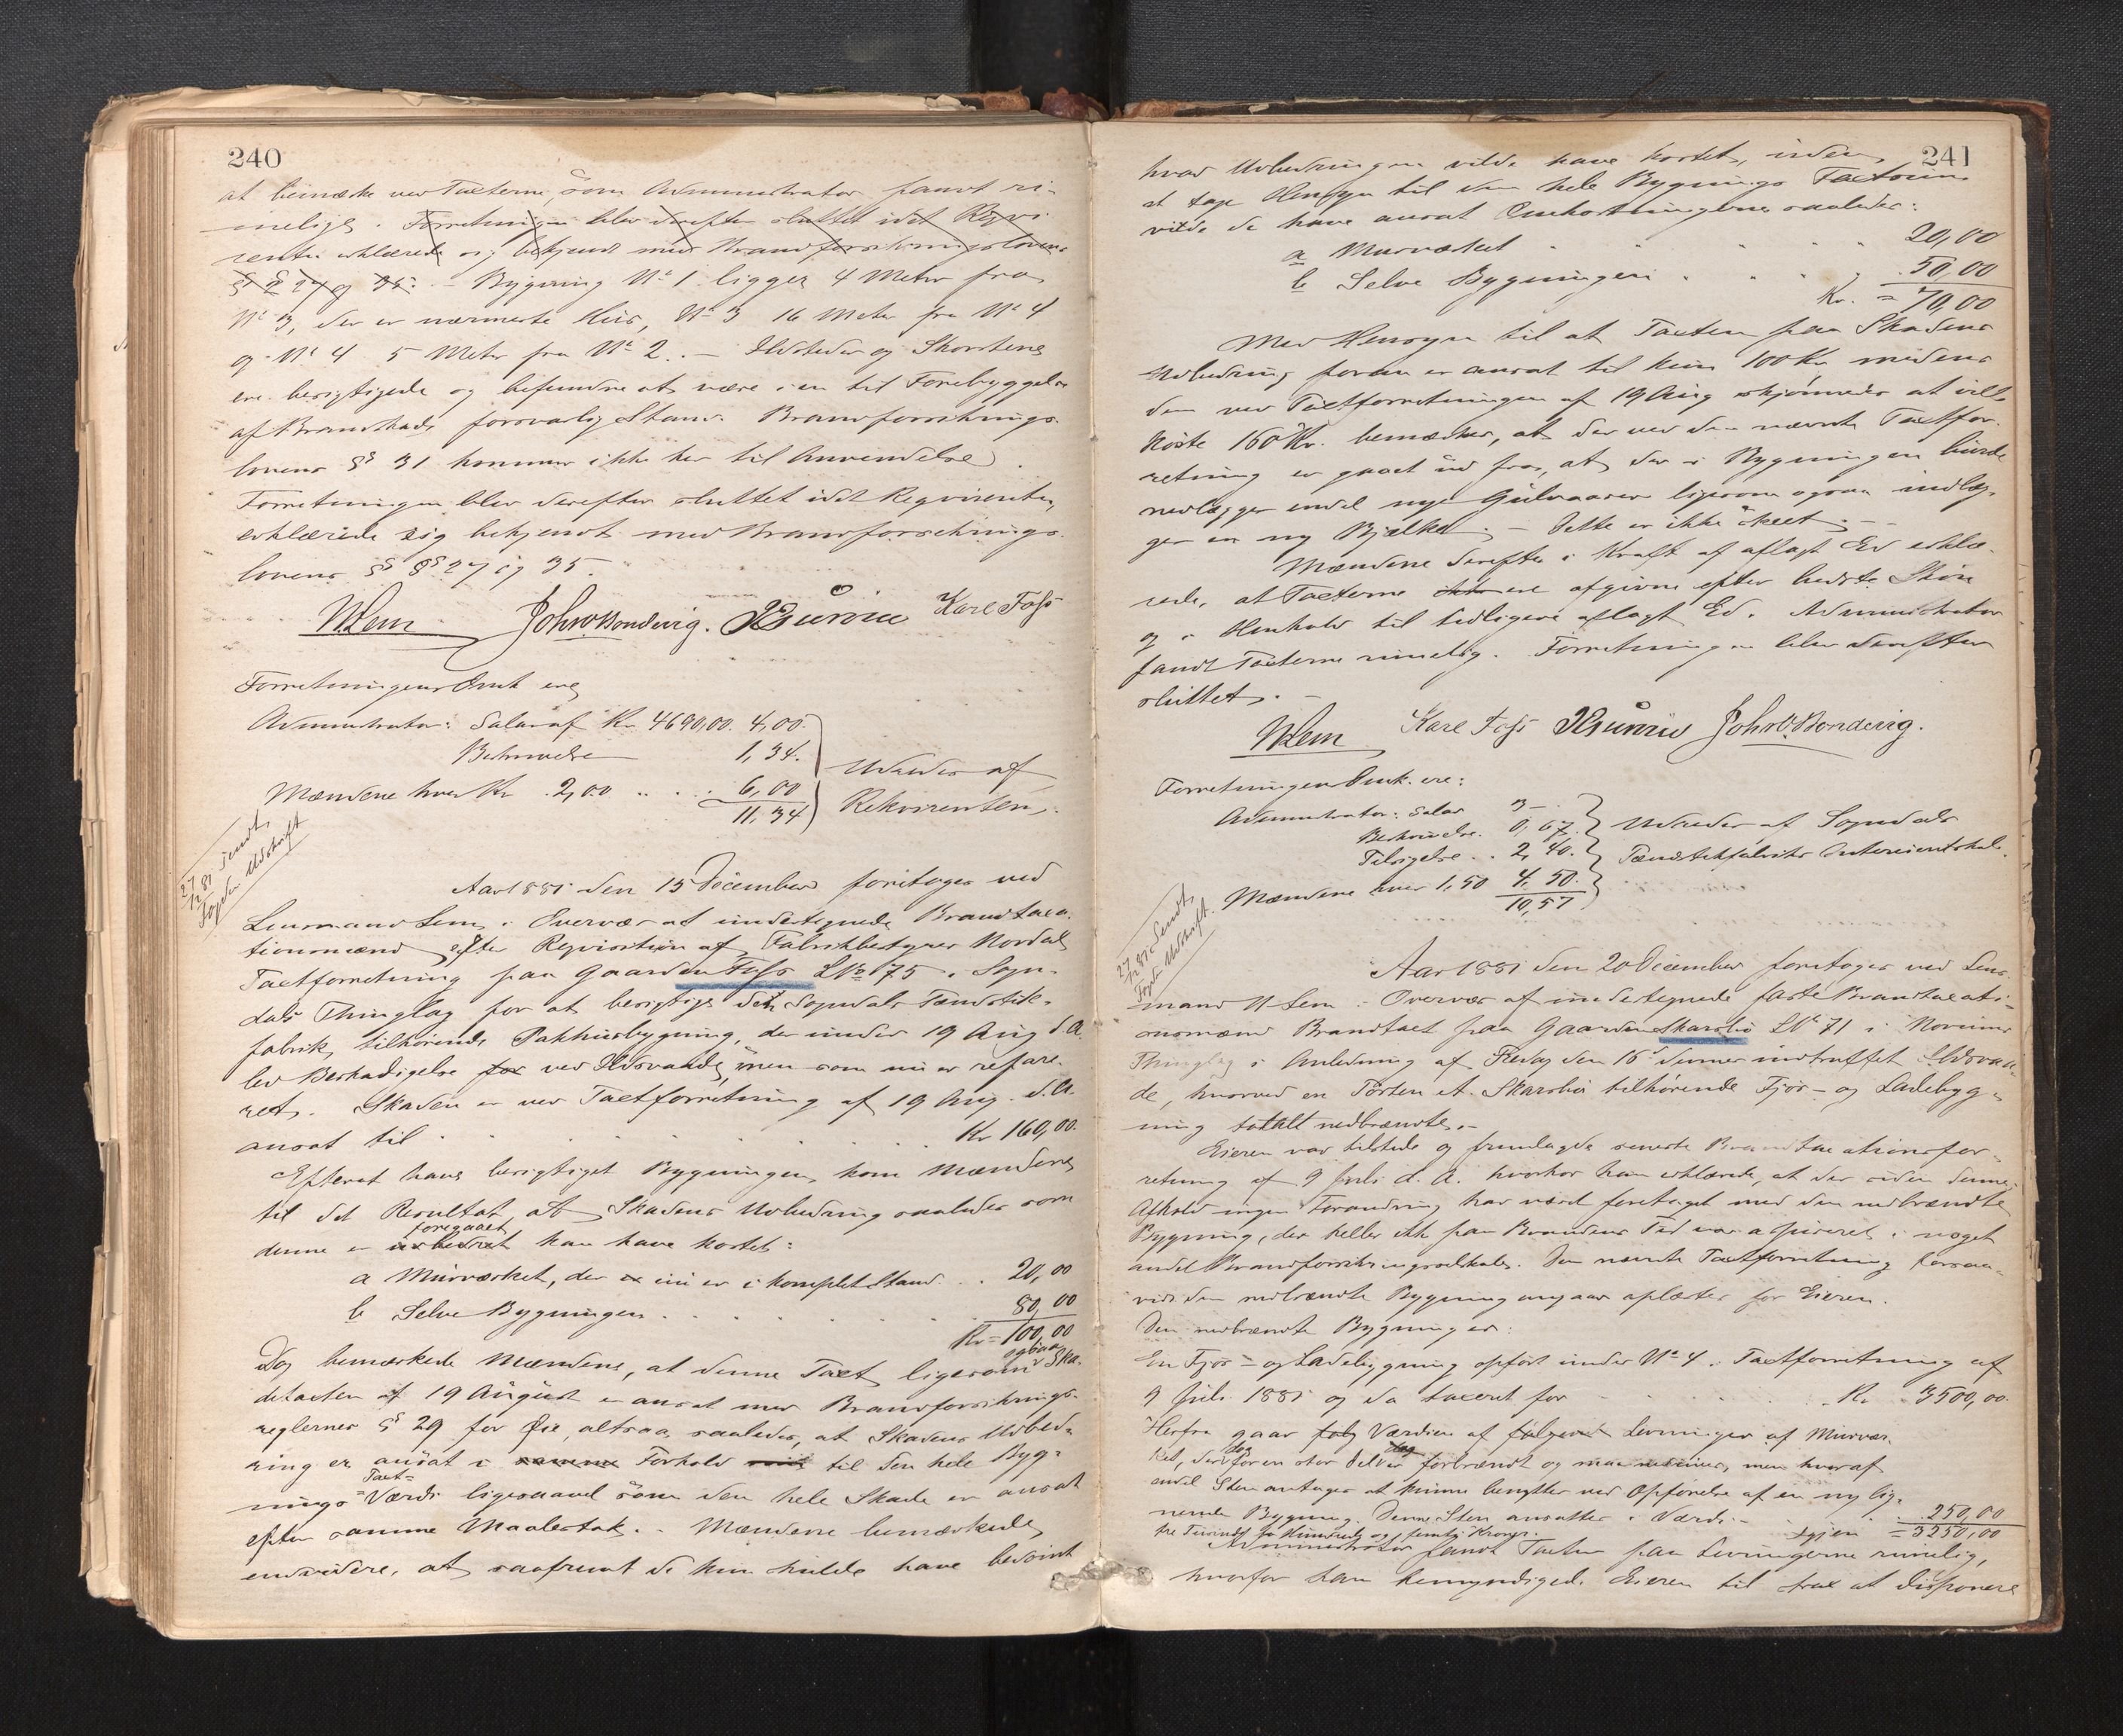 240
at bemærke ved Taxterne, som Administrator fandt ri-
melige. Forretningen blev derefter sluttet idet Reqvi-
renten erklærede sig bekjendt med Brandforsikringslovens
§§ 27 og 35. - Bygning No 1 ligger 4 Meter fra
No 3, der er nærmeste Huus, No 3 16 Meter fra No 4
og No 4 5 Meter fra No 2. - Ildsteder og Skorstene
ere besigtigede og befundne at være i en til Forebyggelse
af Brandskade forsvarlig Stand. Brandforsikrings-
lovens § 31 kommer ikke her til Anvendelse.
Forretningen blev derefter sluttet idet Reqvirenten
erklærede sig bekjendt med Brandforsikrings-
lovens §§ 27 og 35.
N. Lem Joh. O. Bonderig. Karl Foss
Forretningens Omk. ere
Administrator: Salar af Kr 4690,00. 4,00.
Beskrivelse 1,34.
Mændene hver Kr. 2,00 6,00
11,34
Udredes af
Rekvirenten.
27/12 81 Sendt
Fogden Udskrift
Aar 1881 den 15 December foretoges ved
Lensmand Lem i Overvær af undertegnede Brandtaxa-
tionsmænd efter Reqvisition af Fabrikbestyrer Nordal
Taxtforretning paa Gaarden Foss LNo 75 i Sogn-
dals Thinglag for at besigtige den Sogndals Tændstik-
fabrik tilhørende Pakhusbygning, der under 19 Aug d. A.
led Beskadigelse for ved Ildsvaade, men som nu er repare-
ret. Skaden er ved Taxtforretning af 19 Aug. d. A.
ansat til Kr 160,00.
Efterat have besigtiget Bygningen, kom Mændene
til det Resultat, at Skadens Udbedring saaledes som
foregaaet
denne er udbedret kan have kostet:
a Murværket, der er nu er i komplet Stand 20,00
b Selve Bygningen 80,00
Kr = 100,00
Dog bemærkede Mændene, at denne Taxt ligesom ogsaa Ska-
detaxten af 19 August er ansat med Brandforsikrings-
reglernes § 29 for Øie, altsaa saaledes, at Skadens Udbed-
ring er ansat i samme Forhold til den hele Byg-
Taxt=
nings Værdi ligesaavel som den hele Skade er ansat
efter samme Maalestok. - Mændene bemærkede
endvidere, at saafremt de kun skulde have bedømt
241
hvad Udbedringen vilde have kostet, uden
at tage Hensyn til den hele Bygnings Taxtsum
vilde de have ansat Omkostningerne saaledes:
a Murværket 20,00
b Selve Bygningen 50,00
Kr. = 70,00
Med Hensyn til at Taxten paa Skadens
Udbedring foran er ansat til kun 100 Kr. medens
den ved Taxtforretningen af 19 Aug skjønnedes at ville
koste 160 Kr. bemærkes, at der ved den nævnte Taxtfor-
retning er gaaet ud fra, at der i Bygningen burde
nedlægges endel nye Gulvaaser ligesom ogsaa indlæg-
ges en ny Bjælke. - Dette er ikke skeet. -
Mændene derefter i Kraft af aflagt Ed erklæ-
rede, at Taxterne ere afgivne efter bedste Skjøn
og i Henhold til tidligere aflagt Ed. Administrator
fandt Taxterne rimelig. Forretningen blev derefter
sluttet. -
N. Lem Karl Foss Joh. O. Bonderig.
Forretningens Omk. ere:
Administrator: Salar 3 -
Beskrivelse. 0,67.
Tilsigelse. 2,40.
Mændene hver 1,50 4,50.
10,57
Udredes af Sogndals
Tændstikfabriks Interessentskab.
27/12 81 Sendt
Fogden Udskrift.
Aar 1881 den 20 December foretoges ved Lens-
mand N. Lem i Overvær af undertegnede faste Brandtaxati-
onsmænd Brandtaxt paa Gaarden Skarsbø LNo 71 i Norums
Thinglag i Anledning af Fredag den 16de dennes indtruffet Ildsvaa-
de, hvorved en Torsten et. Skarsbø tilhørende Fjøs- og Ladebyg-
ning totalt nedbrændte. -
Eieren var tilstede og fremlagde seneste Brandtaxationsfor-
retning af 9 Juli d. A. hvorhos han erklærede, at der siden dennes
Afhold ingen Forandring har været foretaget med den nedbrændte
Bygning, der heller ikke paa Brandens Tid var assureret i noget
andet Brandforsikringsselskab. Den nævnte Taxtforretning forsaa-
vidt den nedbrændte Bygning angaar oplæstes for Eieren.
Den nedbrændte Bygning er:
En Fjøs- og Ladebygning opført under No 4 i Taxtforretning af
9 Juli 1881 og da taxeret for Kr. 3500,00.
Herfra gaar Værdien af Levninger af Murvær-
ket, der for en stor Del er forbrændt og men hvoraf
endel Sten antages at kunne benyttes ved Opførelse af en ny lig-
nende Bygning. Denne Sten ansattes i Værdi 250,00
igjen = 3250,00
tre Tusinde to Hundrede og femti Kroner.
Administrator fandt Taxten paa Levningerne rimelig,
hvorfor han bemyndigede Eieren til frit at disponere